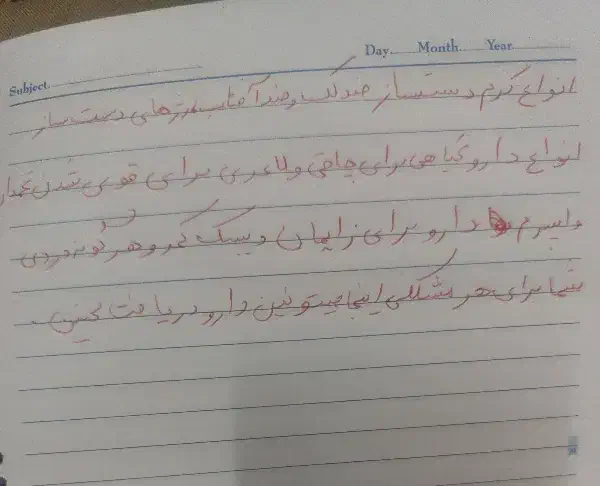 Subject
Day Month Year
انواع کرم دستساز ضد لک و ضد آفتاب کرم‌های دست ساز
انواع دارو گیاهی برای چاقی و لاغری برای قوی شدن
دارو برای زایمان دیسک کمر و هر گونه دردی
شما برای هر مشکلی اینجا میتونین دارو دریافت کنین.